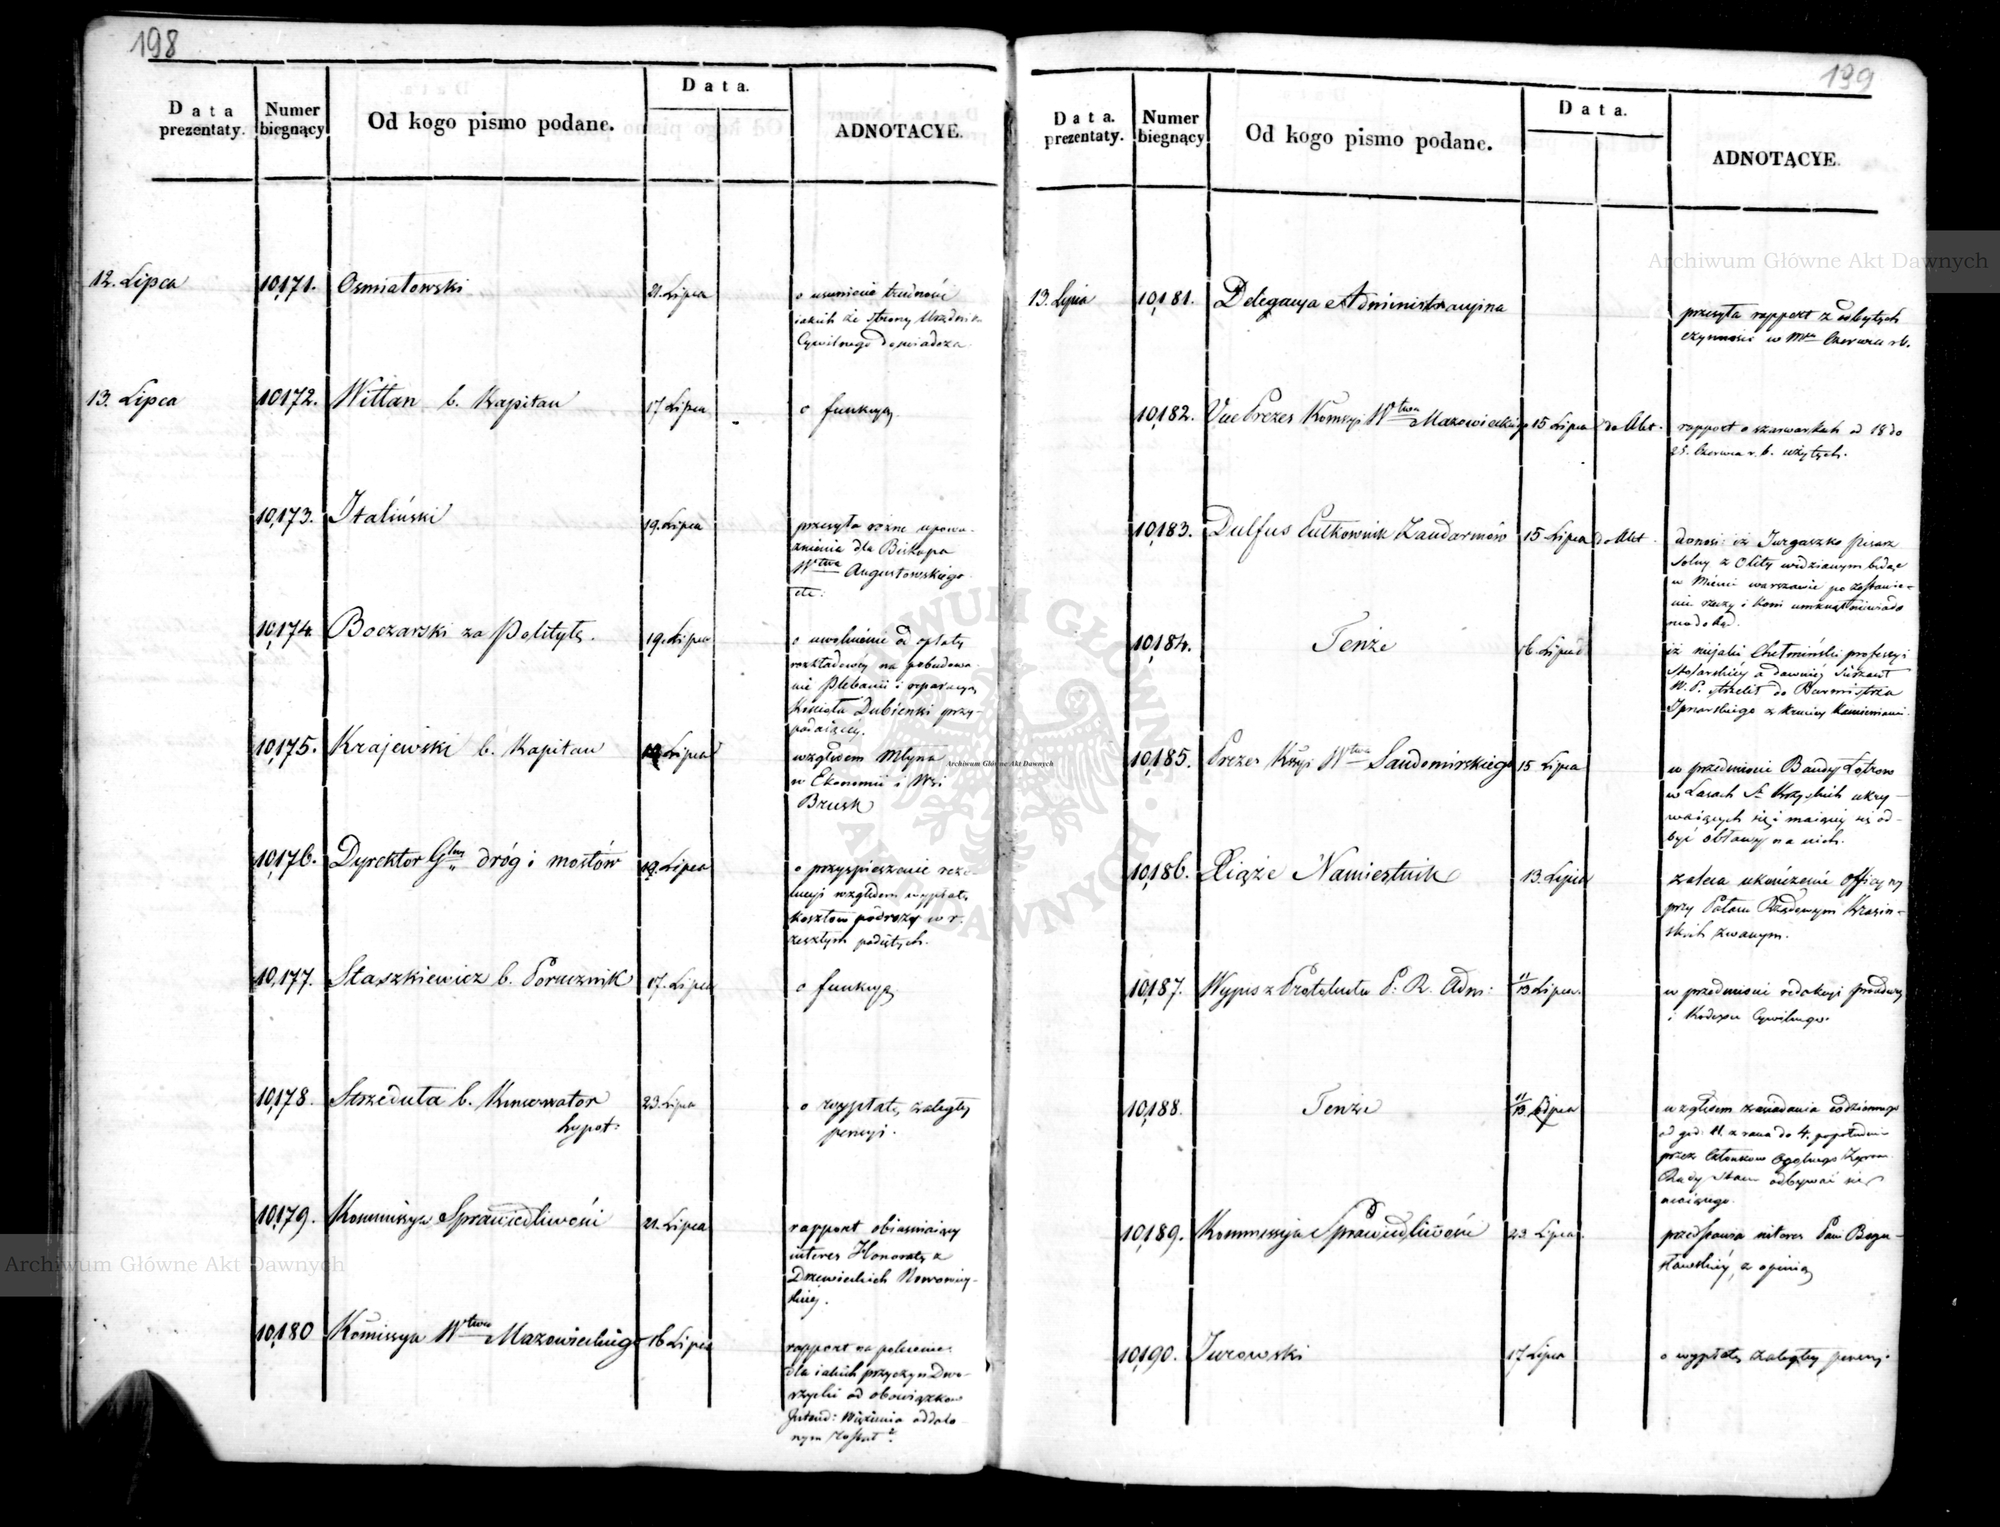 198
Data prezentaty. Numer biegnący Od kogo pismo podane. Data. ADNOTACYE.
12. Lipca 10,171. Osmiałowski 21. Lipca o usunienie trudności
iakich ze strony Urzędnika
Cywilnego doświadcza
13. Lipca 10,172. Wittan b. Kapitan 17 Lipca o funkcyą
10,173. Italiński 19. Lipca przesyła różne upowa-
żnienia dla Biskupa
Wtwa Augustowskiego
etc:
10,174 Boczarski za Polityłę. 19. Lipca o uwolnienie od opłaty
rozkładowéy na pobudowa-
nie Plebanii i reparacyą
Kościoła Dubienki przy-
10,175. Krajewski b. Kapitan 19. Lipca względem Młyna
w Ekonomii i Wsi
Brusk
10,176. Dyrektor Glny dróg i mostów 19. Lipca o przyspieszenie rezo-
lucyi względem wypłaty
kosztów podróży w r.
zeszłym podiętych.
10,177. Staszkiewicz b. Porucznik 17. Lipca o funkcyą
10,178. Strzeduła b. Konserwator 23. Lipca o wypłatę zaległéy
hypot: pensyi.
10,179. Kommissya Sprawiedliwości 21. Lipca rapport obiaśniaiący
interes Honoraty z
Drzewieckich
10,180 Kommissya Wtwa Mazowieckiego 16 Lipca rapport na polecenie
dla iakich przyczyn Dwo-
rzycki od obowiązków
Intend: Więzienia oddalo-
nym został.
199
Data. prezentaty. Numer biegnący Od kogo pismo podane. Data. ADNOTACYE.
13. Lipca 10,181. Delegacya Administracyjna przesyła rapport z odbytych
czynności w Mcu Czerwcu r.b.
10,182. Vice Prezes Kommsyi Wtwa Mazowieckiego 15 Lipca do Akt. rapport o szarwarkach od 18 do
25. Czerwca r. b. użytych.
10,183. Dulfus Pułkownik Żandarmów 15 Lipca do Akt. donosi iż Jurgaszko Pisarz
Solny z Olity widzianym będąc
w Mieście warszawie po zostawie-
nie rzeczy i koni umknął niewiado
mo dokąd.
10,184. Tenże 16. Lipca iż niejaki Chełmiński professyi
Stolarskiéy a dawniéy Sierżant
W. P. strzelił do Burmistrza
10,185. Prezes Kssyi Wtwa Sandomirskiego 15 Lipca w przedmiocie Bandy Łotrów
w Lasach St. Krzyskich ukry-
waiących się i maiącéy się od-
być obławy na nich.
10,186. Xiąże Namiestnik 13. Lipca zaleca ukończenie officyny
przy Pałacu Rządowym Krasiń-
skich zwanym.
10,187. Wypis z Protokułu P. R. Adm: 11/13 Lipca. w przedmiocie redakcyi procedury
i Kodexu Cywilnego.
10,188. Tenże 11/13. Lipca względem zasiadania codziennego
od god: 11. z rana do 4. popołudniu
przez Członków Ogólnego Zgrom.
Rady Stanu odbywać się
maiącego.
10,189. Kommissyja Sprawiedliwości 23 Lipca. przedstawia interes Pani Bogu-
sławskiéy, z opinią
10,190. Jurowski 17 Lipca o wypłatę zaległéy pensyi.
Archiwum Główne Akt Dawnych
Archiwum Główne Akt Dawnych
Archiwum Główne Akt Dawnych
ARCHIWUM GŁÓWNE AKT DAWNYCH